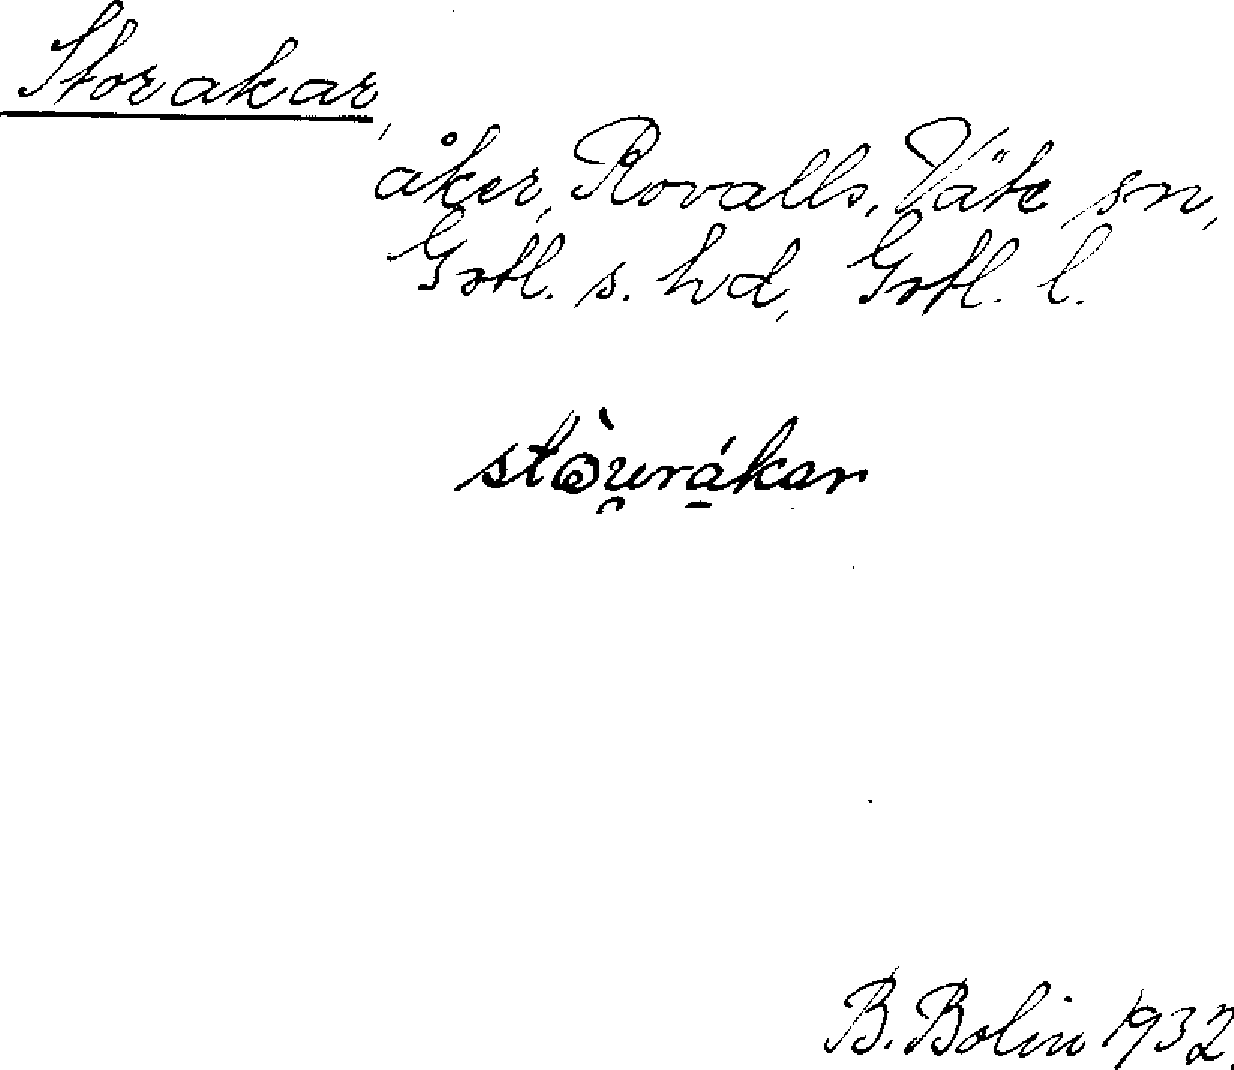 Storakar,
åker, Rovalls, Väte sn,
Gotl. s. hd, Gotl. l.
stòu̯rákar
B. Bolin 1932.